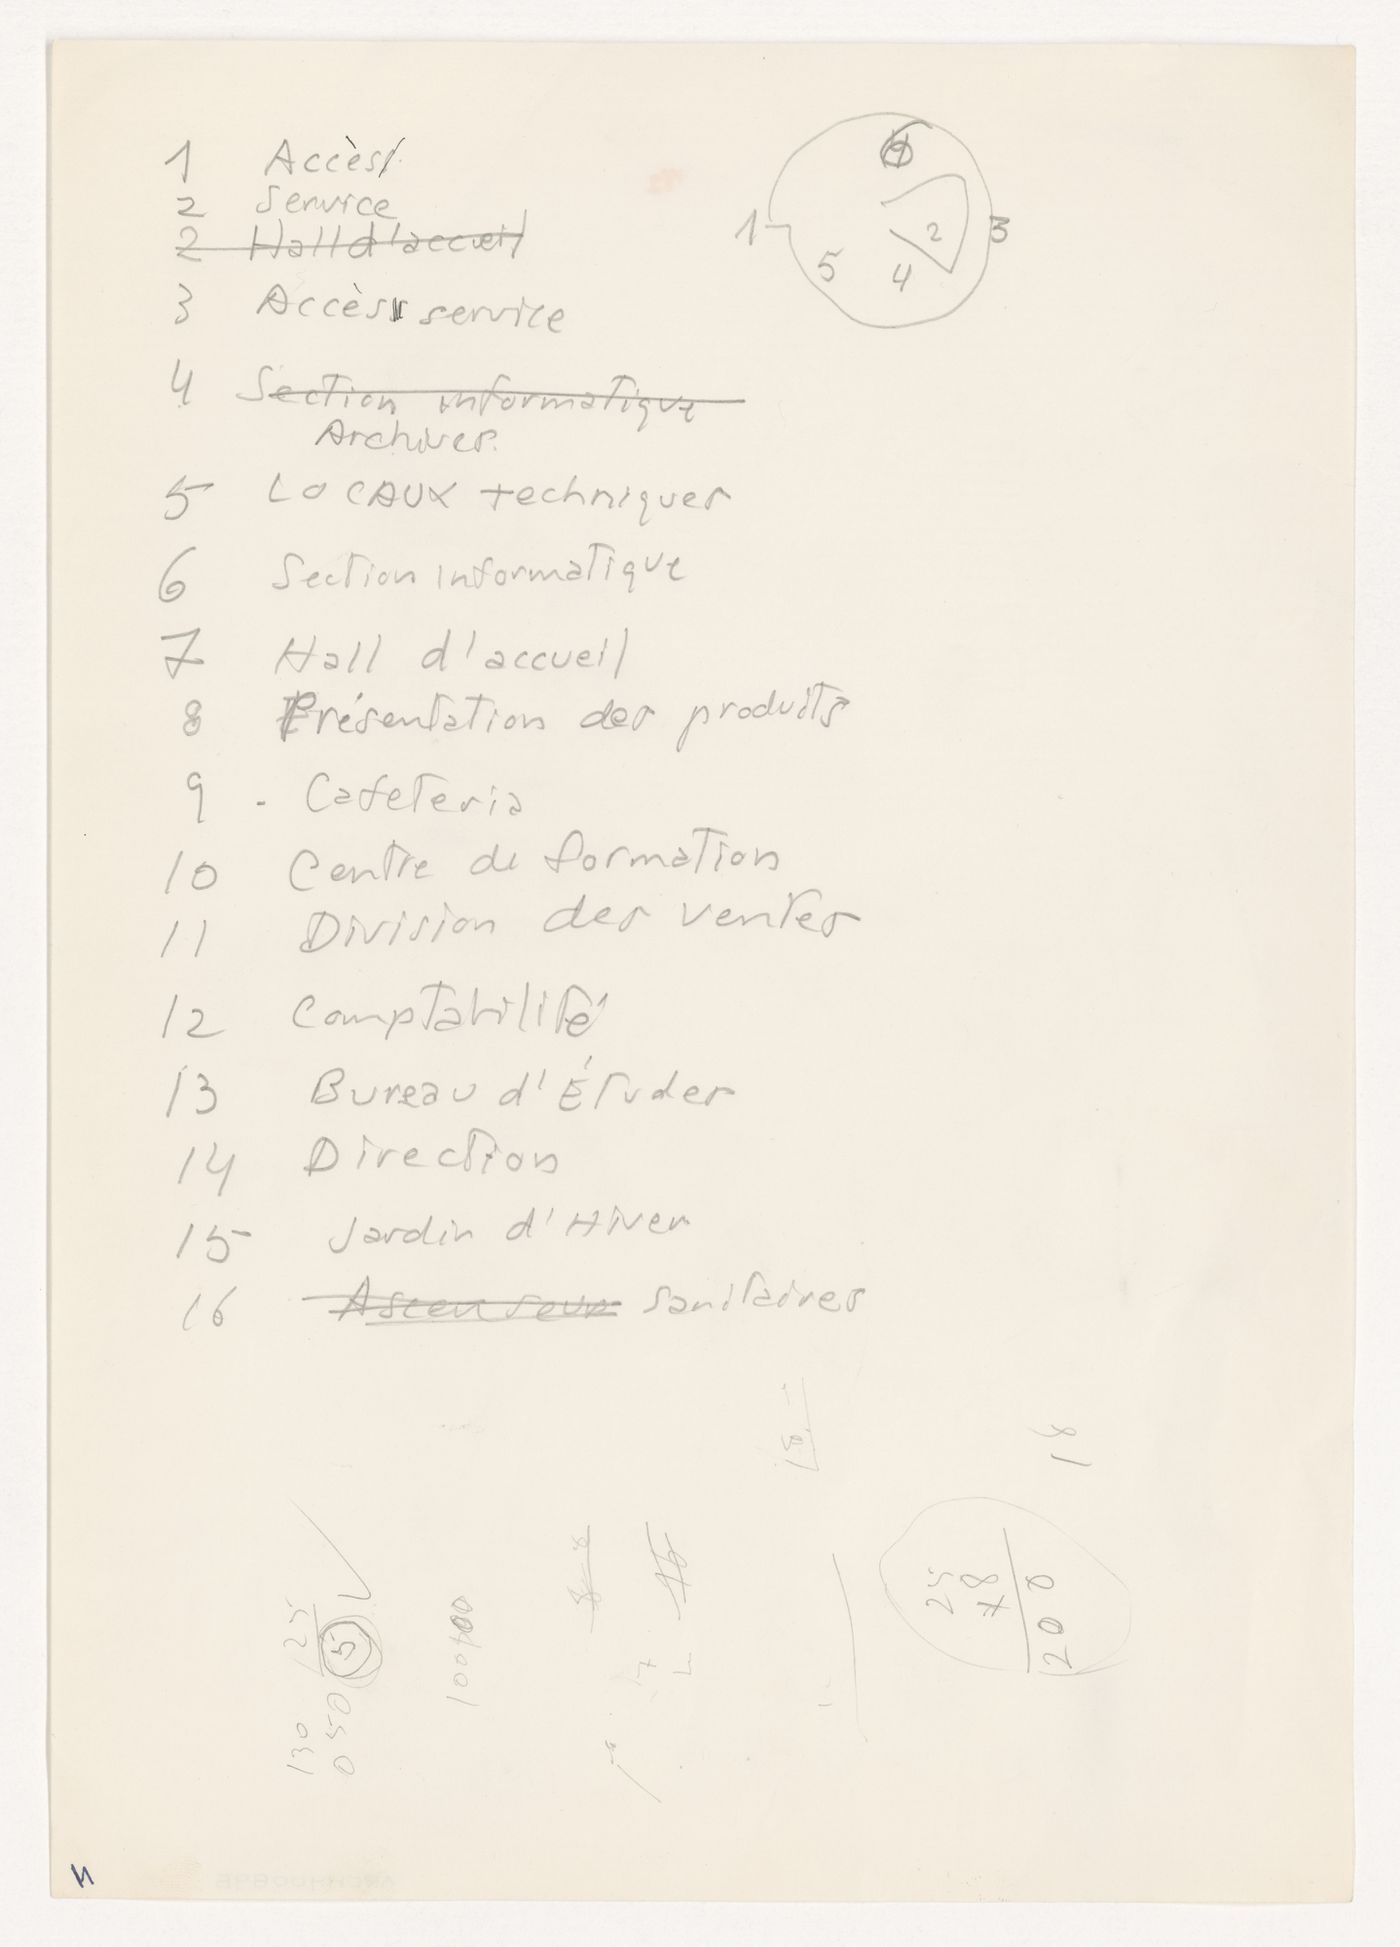 1 Accès
2 Service
2 Hall d'accueil
3 Accès service
4 Section informatique
Archives.
5 LOCAUX techniques
6 Section informatique
7 Hall d'accueil
8 Présentation des produits
9 - Cafeteria
10 Centre de formation
11 Division des ventes
12 Comptabilité
13 Bureau d'Études
14 Direction
15 Jardin d'Hiver
16 Ascenseur sanitaires
6
1
2
3
5
4
18
25
×8
200
130
25
050
5